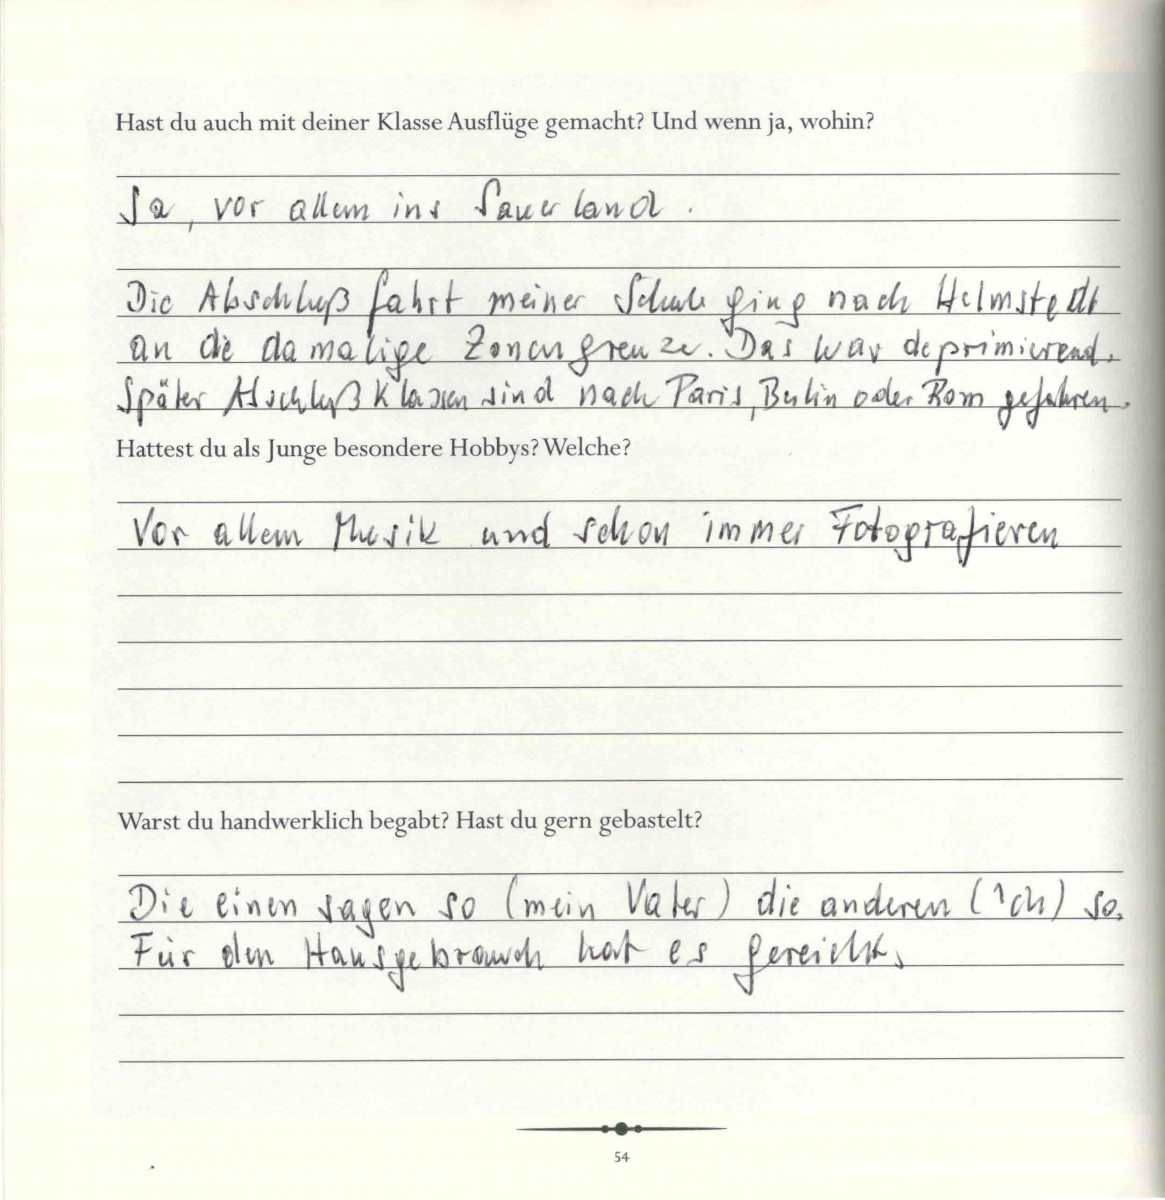 Hast du auch mit deiner Klasse Ausflüge gemacht? Und wenn ja, wohin?
Ja, vor allem ins Sauerland.
Die Abschlußfahrt meiner Schule ging nach Helmstedt
an die damalige Zonengrenze. Das war deprimierend.
Später Abschlußklassen sind nach Paris, Berlin oder Rom gefahren.
Hattest du als Junge besondere Hobbys? Welche?
Vor allem Musik und schon immer Fotografieren
Warst du handwerklich begabt? Hast du gern gebastelt?
Die einen sagen so (mein Vater) die anderen (ich) so.
Für den Hausgebrauch hat es gereicht.
54